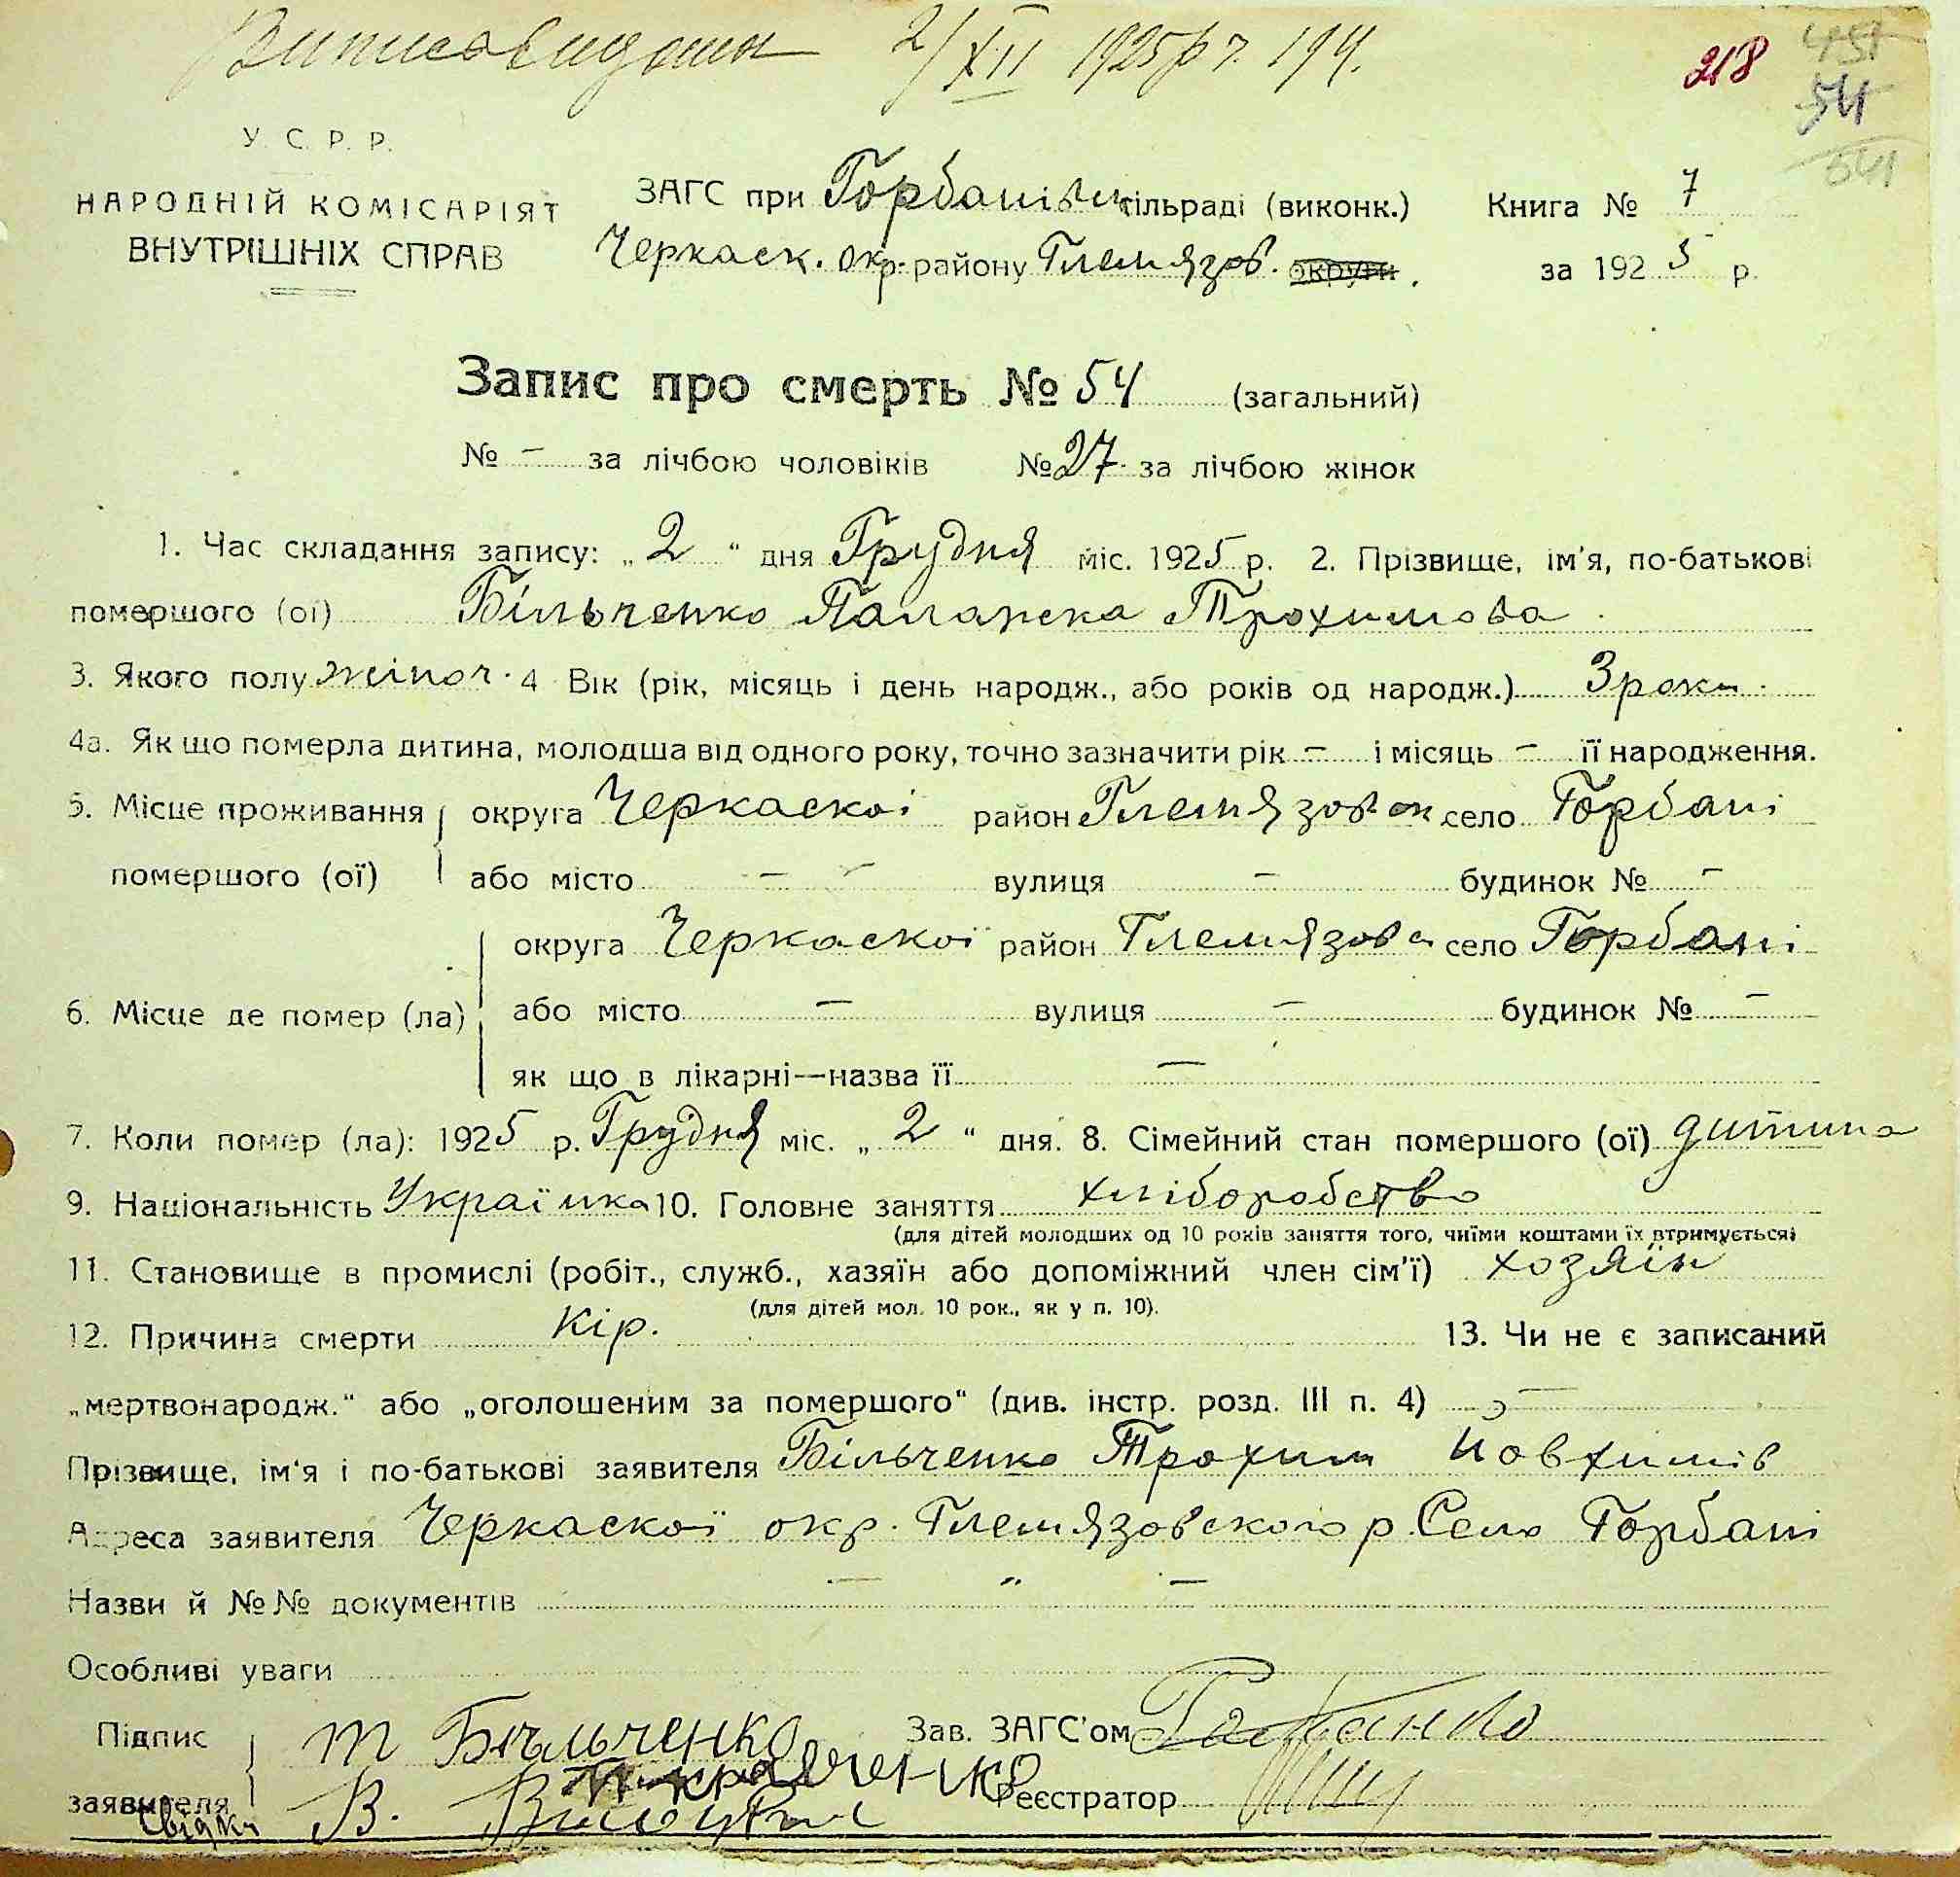 Випис видани 2/XII 1925р г. 194.
218 451
54
541
У. С. Р. Р.
НАРОДНІЙ КОМІСАРІЯТ
ВНУТРІШНІХ СПРАВ
ЗАГС при Горбанівск сільраді (виконк.) Книга № 7
Черкаск. окр. району Глемязов. округи. за 1925 р.
Запис про смерть № 54 (загальний)
№ – за лічбою чоловіків № 27 за лічбою жінок
1. Час складання запису: „2“ дня Грудня міс. 1925 р. 2. Прізвище, ім'я, по-батькові
помершого (ої) Більченко Палажка Трохимова
3. Якого полу жіноч. 4 Вік (рік, місяць і день народж., або років од народж.) 3 роки.
4а. Як що померла дитина, молодша від одного року, точно зазначити рік – і місяць – її народження.
5. Місце проживання округа Черкаскоі район Глемязовск село Горбані
помершого (ої) або місто – вулиця – будинок № –
округа Черкаскої район Глемязовс село Горбані
6. Місце де помер (ла) або місто – вулиця – будинок № –
як що в лікарні—назва її –
7. Коли помер (ла): 1925 р. Грудня міс. „2“ дня. 8. Сімейний стан помершого (ої) дитина
9. Національність Українка 10. Головне заняття хліборобство
(для дітей молодших од 10 років заняття того, чиїми коштами їх втримується)
11. Становище в промислі (робіт., служб., хазяїн або допоміжний член сім'ї) хозяїн
(для дітей мол. 10 рок., як у п. 10).
12. Причина смерти Кір. 13. Чи не є записаний
„мертвонародж.“ або „оголошеним за помершого“ (див. інстр. розд. III п. 4) –
Прізвище, ім'я і по-батькові заявителя Більченко Трохим Йовхимів
Адреса заявителя Черкаскої окр. Глемязовского р. Село Горбані
Назви й №№ документів – „ –
Особливі уваги
Підпис Т Більченко Зав. ЗАГС'ом
заявителя Реєстратор
Свідки В.